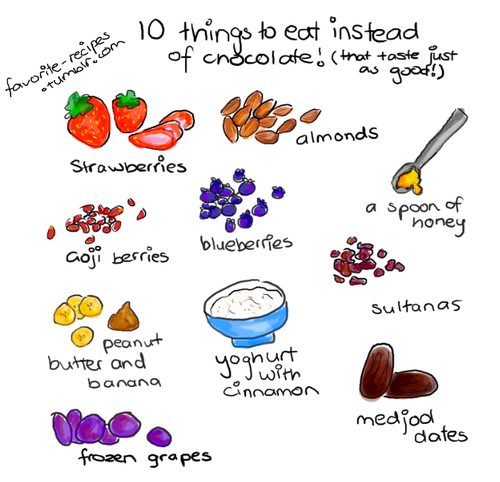 10 things to eat instead
of chocolate! (that taste just
as good!)
favorite-recipes
.tumblr.com
strawberries
almonds
a spoon of
honey
Goji berries
blueberries
sultanas
peanut
butter and
banana
yoghurt
with
cinnamon
medjool
dates
frozen grapes